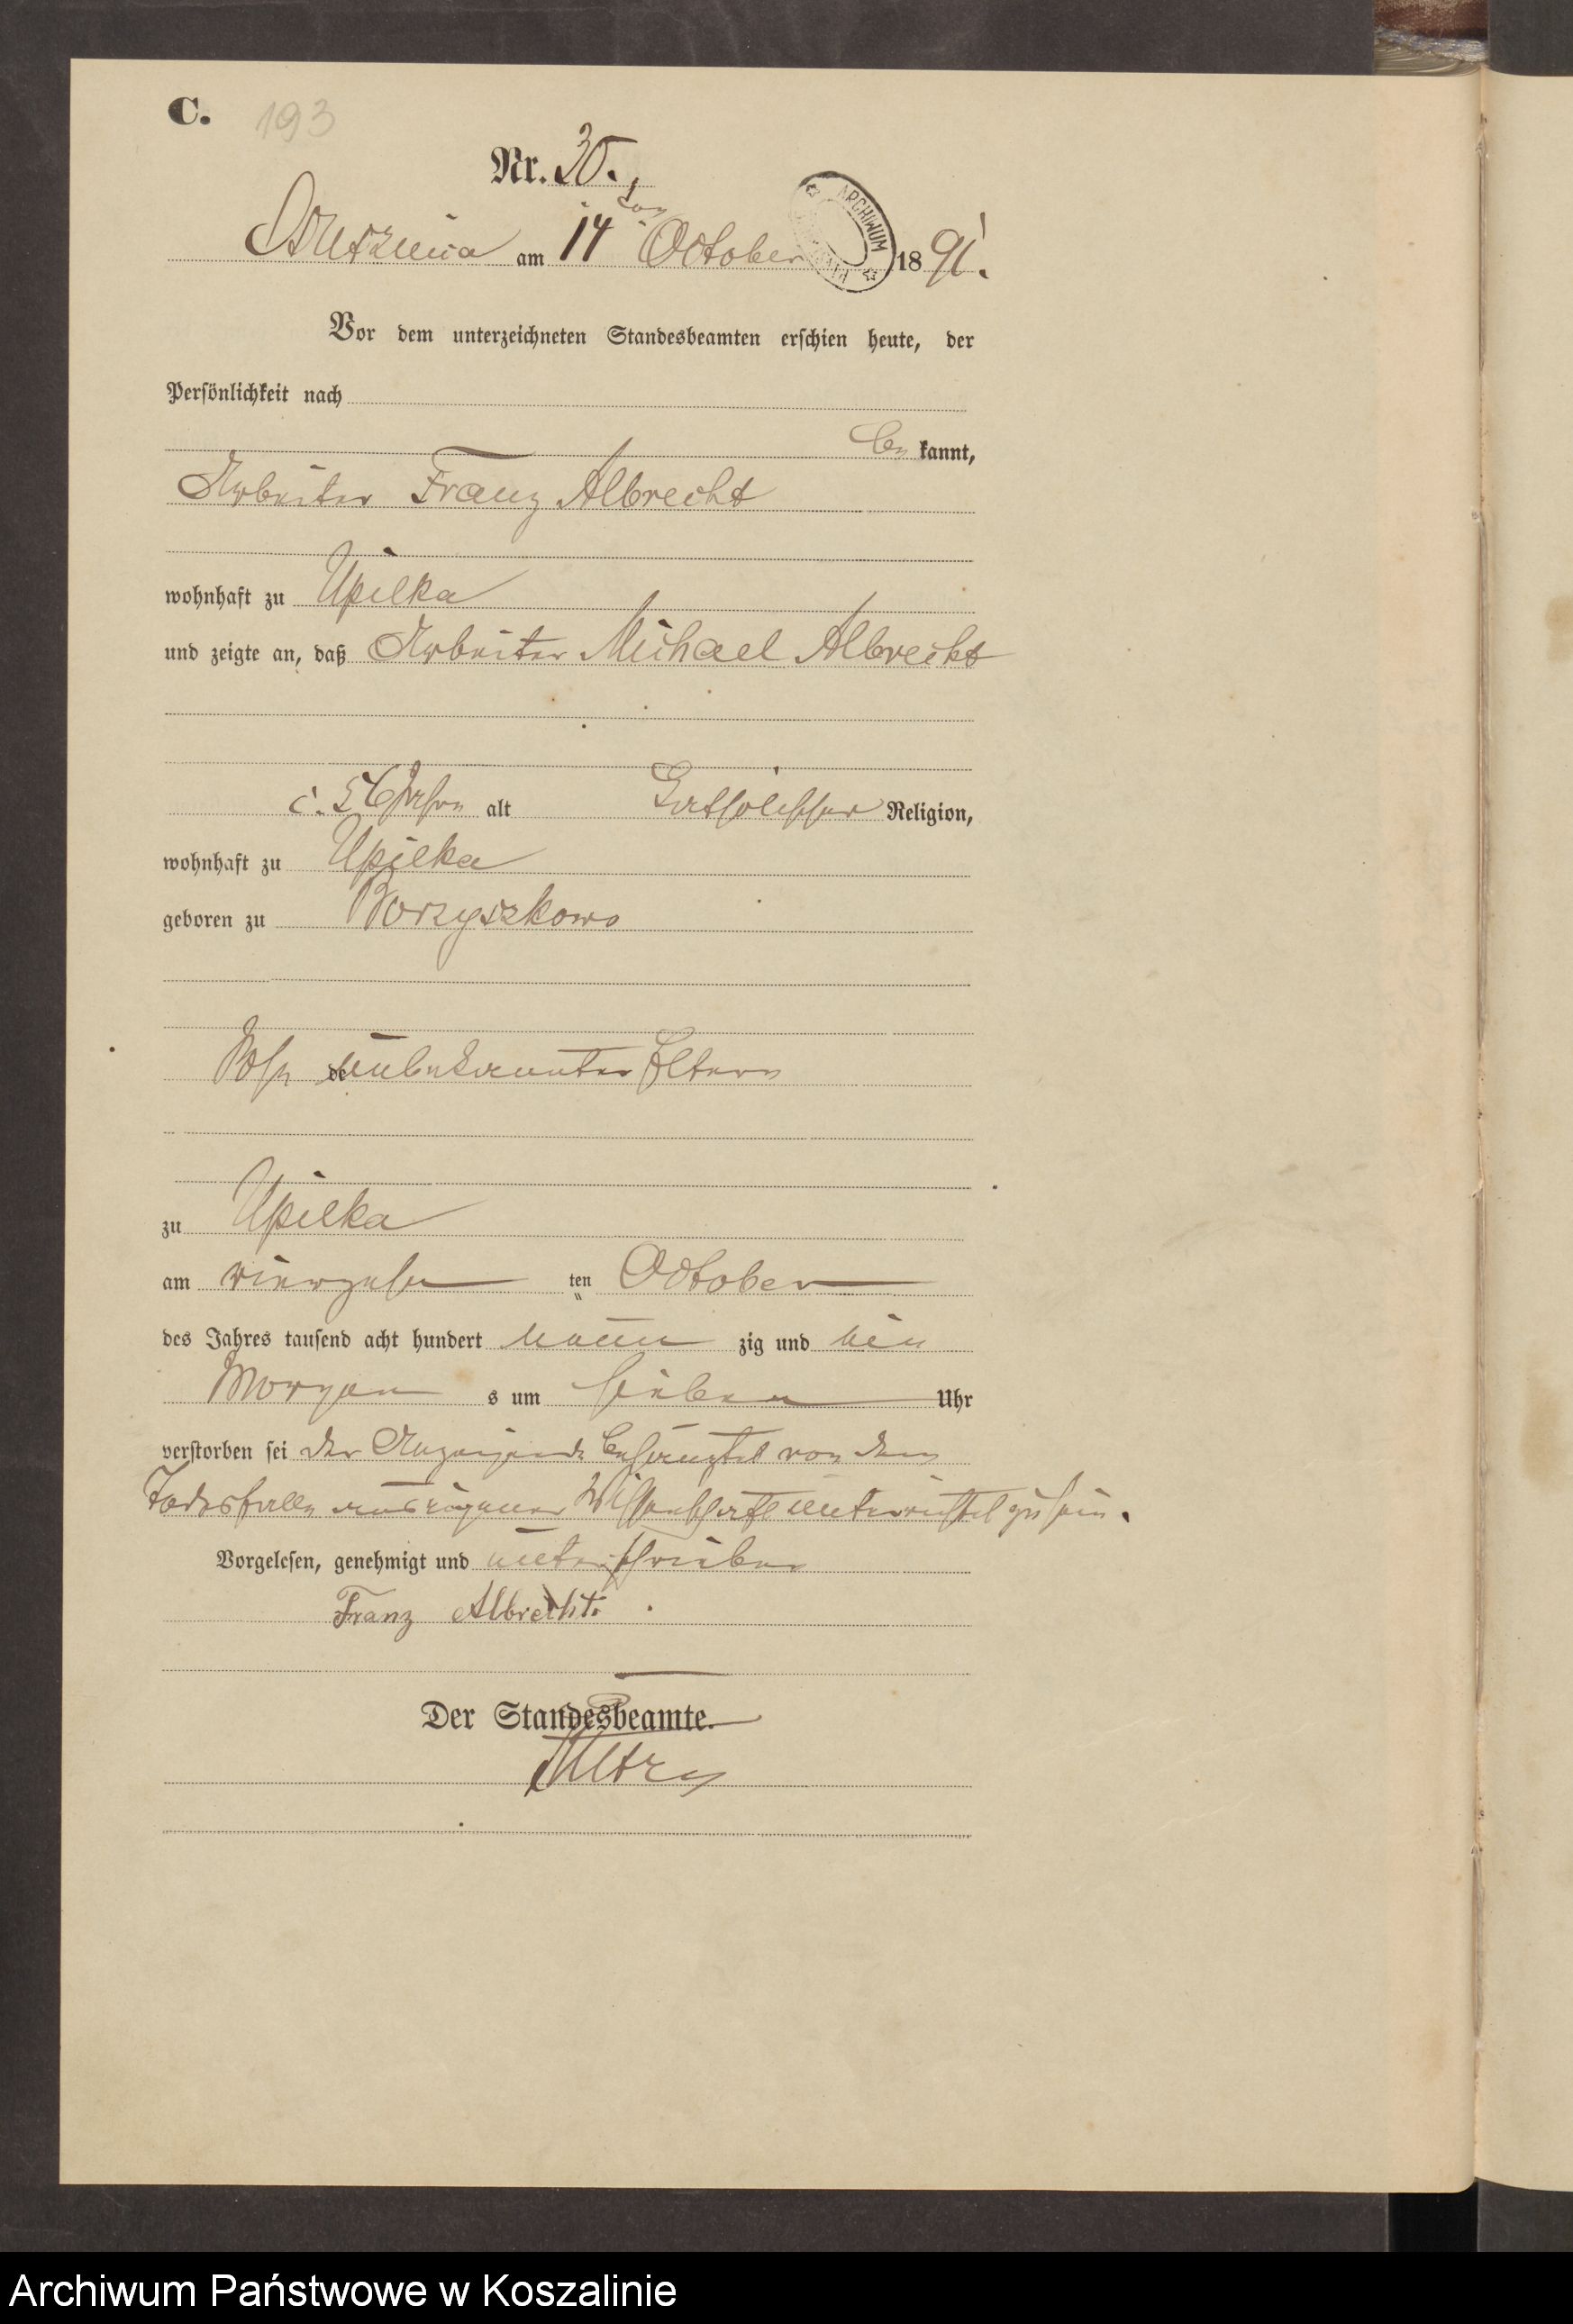 C. 193
Nr. 30.
am 14 ten October 1891.
ARCHIWUM
Vor dem unterzeichneten Standesbeamten erschien heute, der
Persönlichkeit nach
be kannt,
Arbeiter Franz Albrecht
wohnhaft zu Upilka
und zeigte an, daß Arbeiter Michael Albrecht
c. 56 Jahre alt Katholischer Religion,
wohnhaft zu Upilka
geboren zu Borzyszkowo
Sohn unbekannter Eltern
zu Upilka
am vierzehn ten October
des Jahres tausend acht hundert neun zig und ein
Morgen s um sieben Uhr
verstorben sei der Anzeigende behauptet von dem
Todesfalle aus eigener Wissenschaft unterrichtet zu sein.
Vorgelesen, genehmigt und unterschrieben
Franz Albrecht.
Der Standesbeamte.
Archiwum Państwowe w Koszalinie